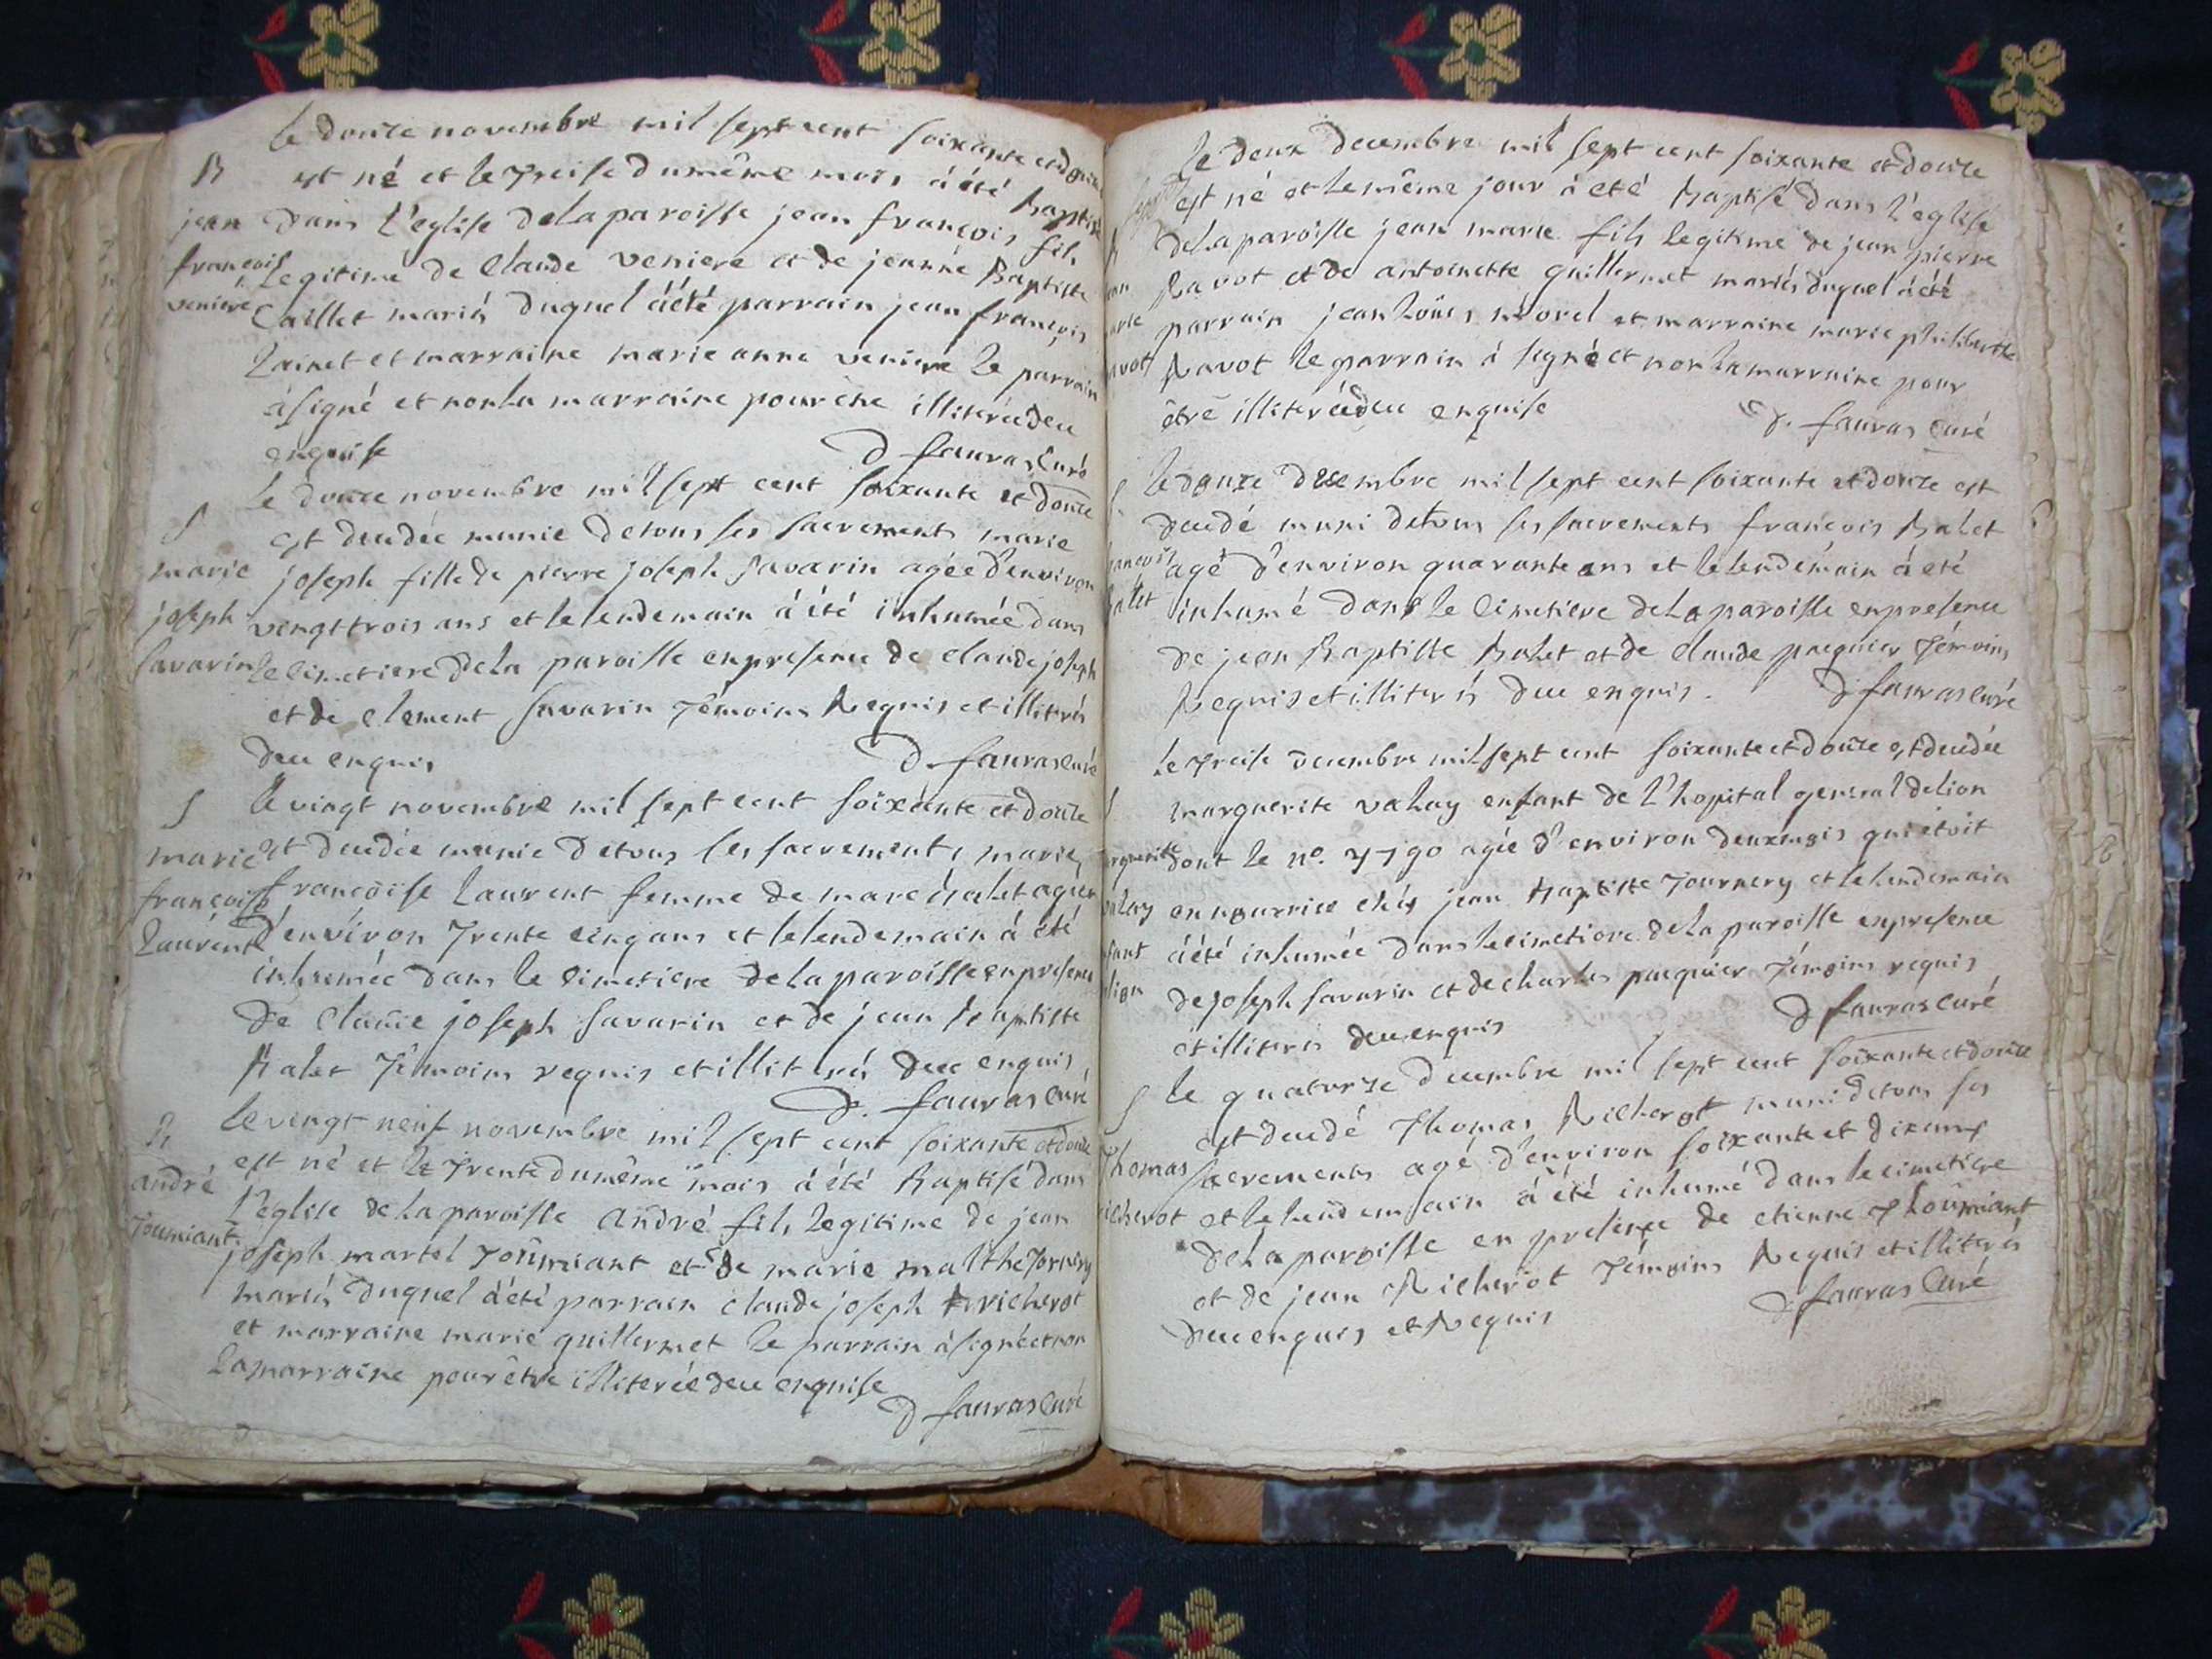 le douze novembre mil sept cent soixante et douze
B est né et le treise du même mois à été Baptisé
jean dans l'eglise de la paroisse jean françois fils
françois legitime de Claude veniere et de jeanne Baptiste
veniere Caillet mariés duquel àété parrain jean françois
lainet et marraine marie anne veniere le parrain
à signé et non la marraine pour être illiterée deu
enquise D fauras Curé
le douze novembre mil sept cent soixante et douze
S est decedée munie de tous ses sacrements marie
marie joseph fille de pierre joseph savarin agée d'environ
joseph vingt trois ans et le lendemain à été inhumée dans
savarin le cimetiere de la paroisse en presence de claude joseph
et de clement savarin témoins Requis et illiterés
deu enquis D. fauras curé
S le vingt novembre mil sept cent soixante et douze
marie est decedée munie de tous ses sacrements marie
françoise françoise laurent femme de marc balet agée
laurent d'environ trente cinq ans et le lendemain à été
inhumée dans le cimetiere de la paroisse en presence
de claude joseph savarin et de jean Baptiste
Balet témoins requis et illiterés deu enquis
D. fauras curé
le vingt neuf novembre mil sept cent soixante et douze
B est né et le trente du même mois à été Baptisé dans
andré l'eglise de la paroisse andré fils legitime de jean
Toumiant joseph martel Toumiant et de marie malthe Tornery
mariés duquel àété parrain claude joseph richerot
et marraine marie guillermet le parrain à signé et non
la marraine pour être illiterée deu enquise
D fauras curé
le deux decembre mil sept cent soixante et douze
est né et le même jour à eté Baptisé dans l'eglise
de la paroisse jean marie fils legitime de jean pierre
Ravot et de antoinette guillermet mariés duquel àété
parrain jean loüis morel et marraine marie philiberthe
avot Ravot le parrain à signé et non la marraine pour
être illiterée deu enquise D. fauras Curé
S le douze decembre mil sept cent soixante et douze est
decedé muni de tous ses sacrements françois Balet
françois agé d'environ quarante ans et le lendemain à eté
Balet inhumé dans le cimetiere de la paroisse en presence
de jean Baptiste Balet et de claude paequier témoins
Requis et illiterés deu enquis. D fauras curé
le treise decembre mil sept cent soixante et douze est decedée
marguerite valay enfant de l'hopital general de lion
arguerite dont le no. agée d'environ deux mois qui étoit
valay en nourrice chés jean Baptiste Tournery et le lendemain
fant àété inhumée dans le cimetiere de la paroisse en presence
lion de joseph savarin et de charles paequier témoins requis
et illiterés deu enquis D fauras curé
S le quatorze decembre mil sept cent soixante et douze
est decedé Thomas Richerot muni de tous ses
Thomas sacrements agé d'environ soixante et dix ans
richerot et le lendemain à été inhumé dans le cimetiere
de la paroisse en presence de etienne Thoumiant
et de jean Richerot témoins Requis et illiterés
deu enquis et Requis D. fauras Curé